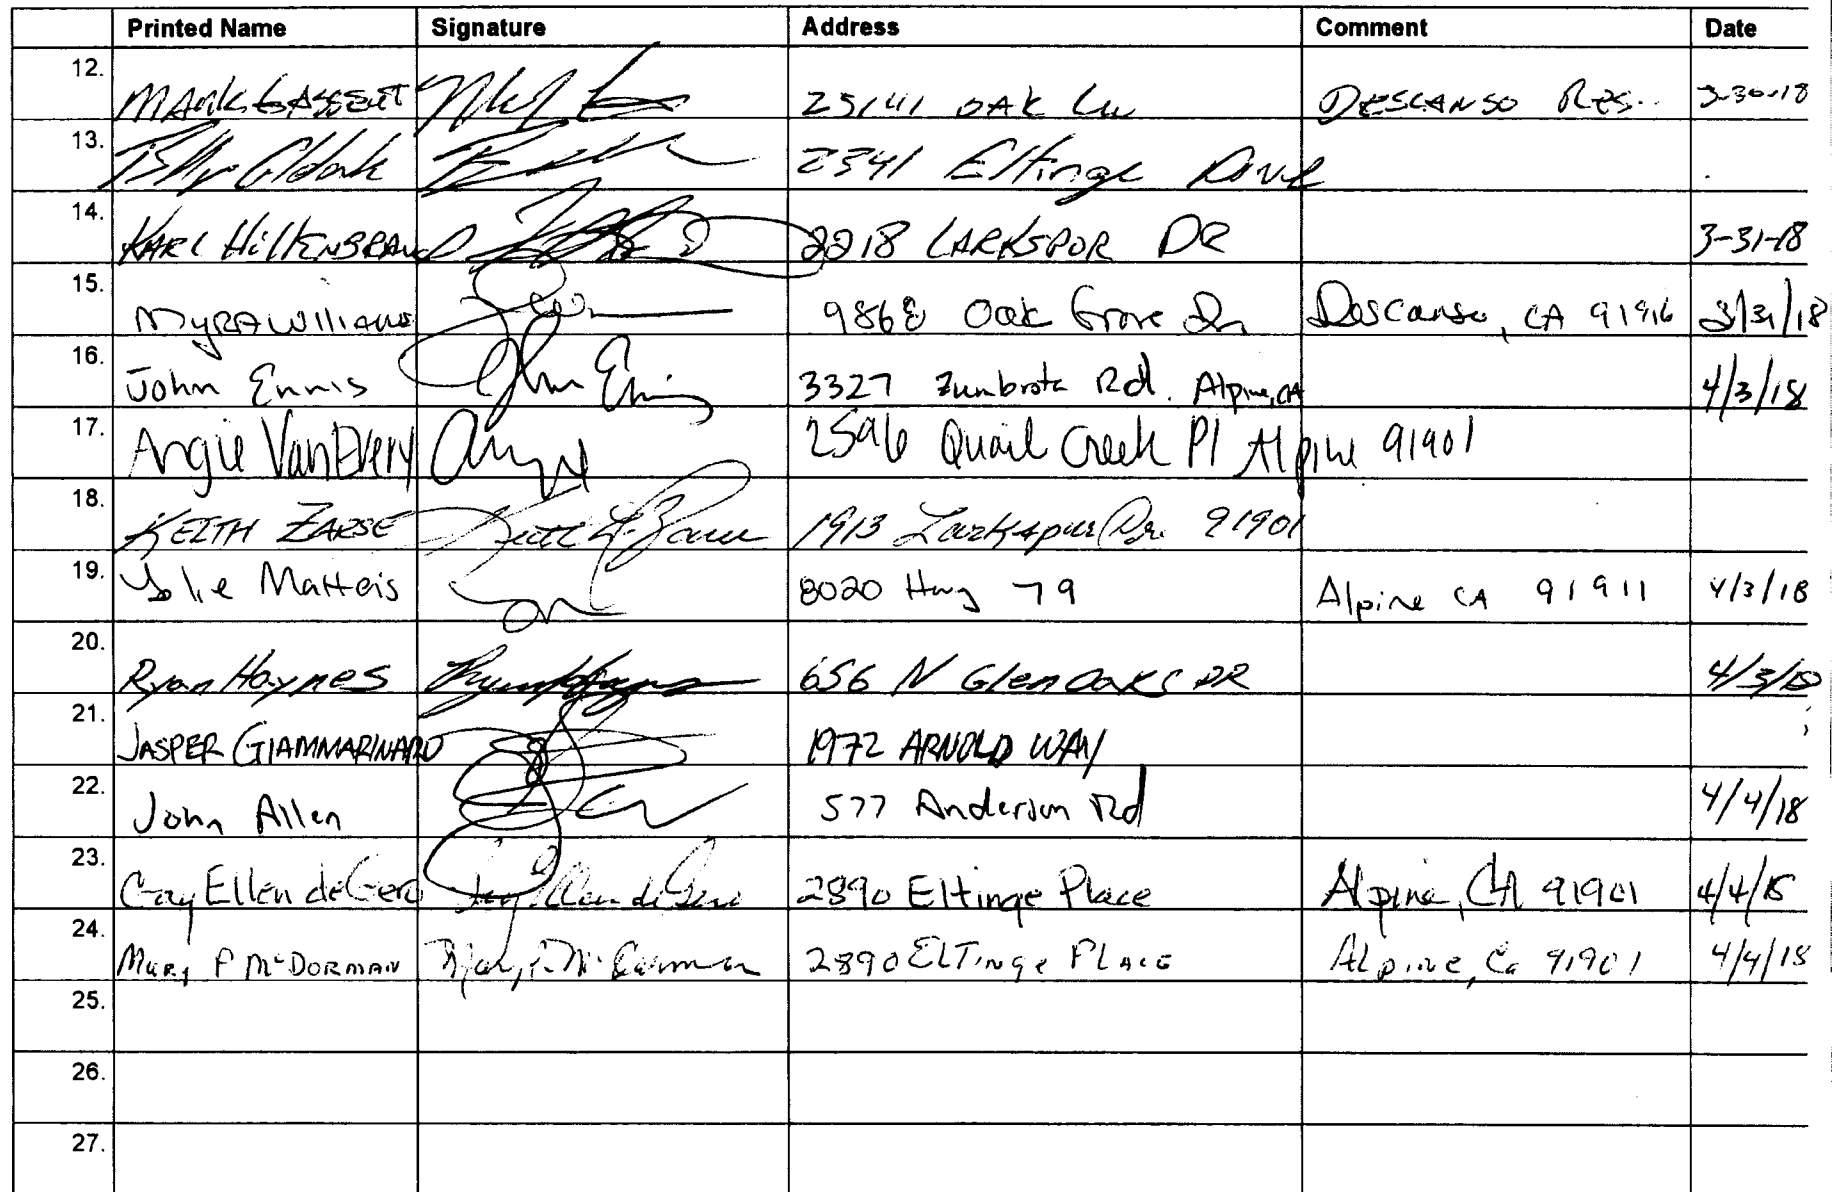 Printed Name Signature Address Comment Date
12. MARK 25141 OAK Ln DESCANSO RES.. 3-30-18
13. 2341 Eltinge Drive
14. KARL HILTENBRAND 2218 LARKSPUR DR 3-31-18
15. MYRA Williams 9868 Oak Grove Dr Descanso, CA 91916 3/31/18
16. John Ennis John Ennis 3327 Zumbrota Rd. Alpine, CA 4/3/18
17. Angie VanEvery 2596 Quail Creek Pl Alpine 91901
18. KEITH ZARSE 1913 Larkspur Dr. 91901
19. Matteis 8020 Hwy 79 Alpine CA 91911 4/3/18
20. Ryan Haynes Ryan Haynes 656 N Glen Oaks DR 4/3/18
21. JASPER GIAMMARINARO 1972 ARNOLD WAY
22. John Allen 577 Anderson Rd 4/4/18
23. Gay Ellen deGero Gay Ellen de Gero 2890 Eltinge Place Alpine, CA 91901 4/4/18
24. Mary P McDORMAN Mary P. McDorman 2890 ELTinge PLACE Alpine, Ca 91901 4/4/18
25.
26.
27.